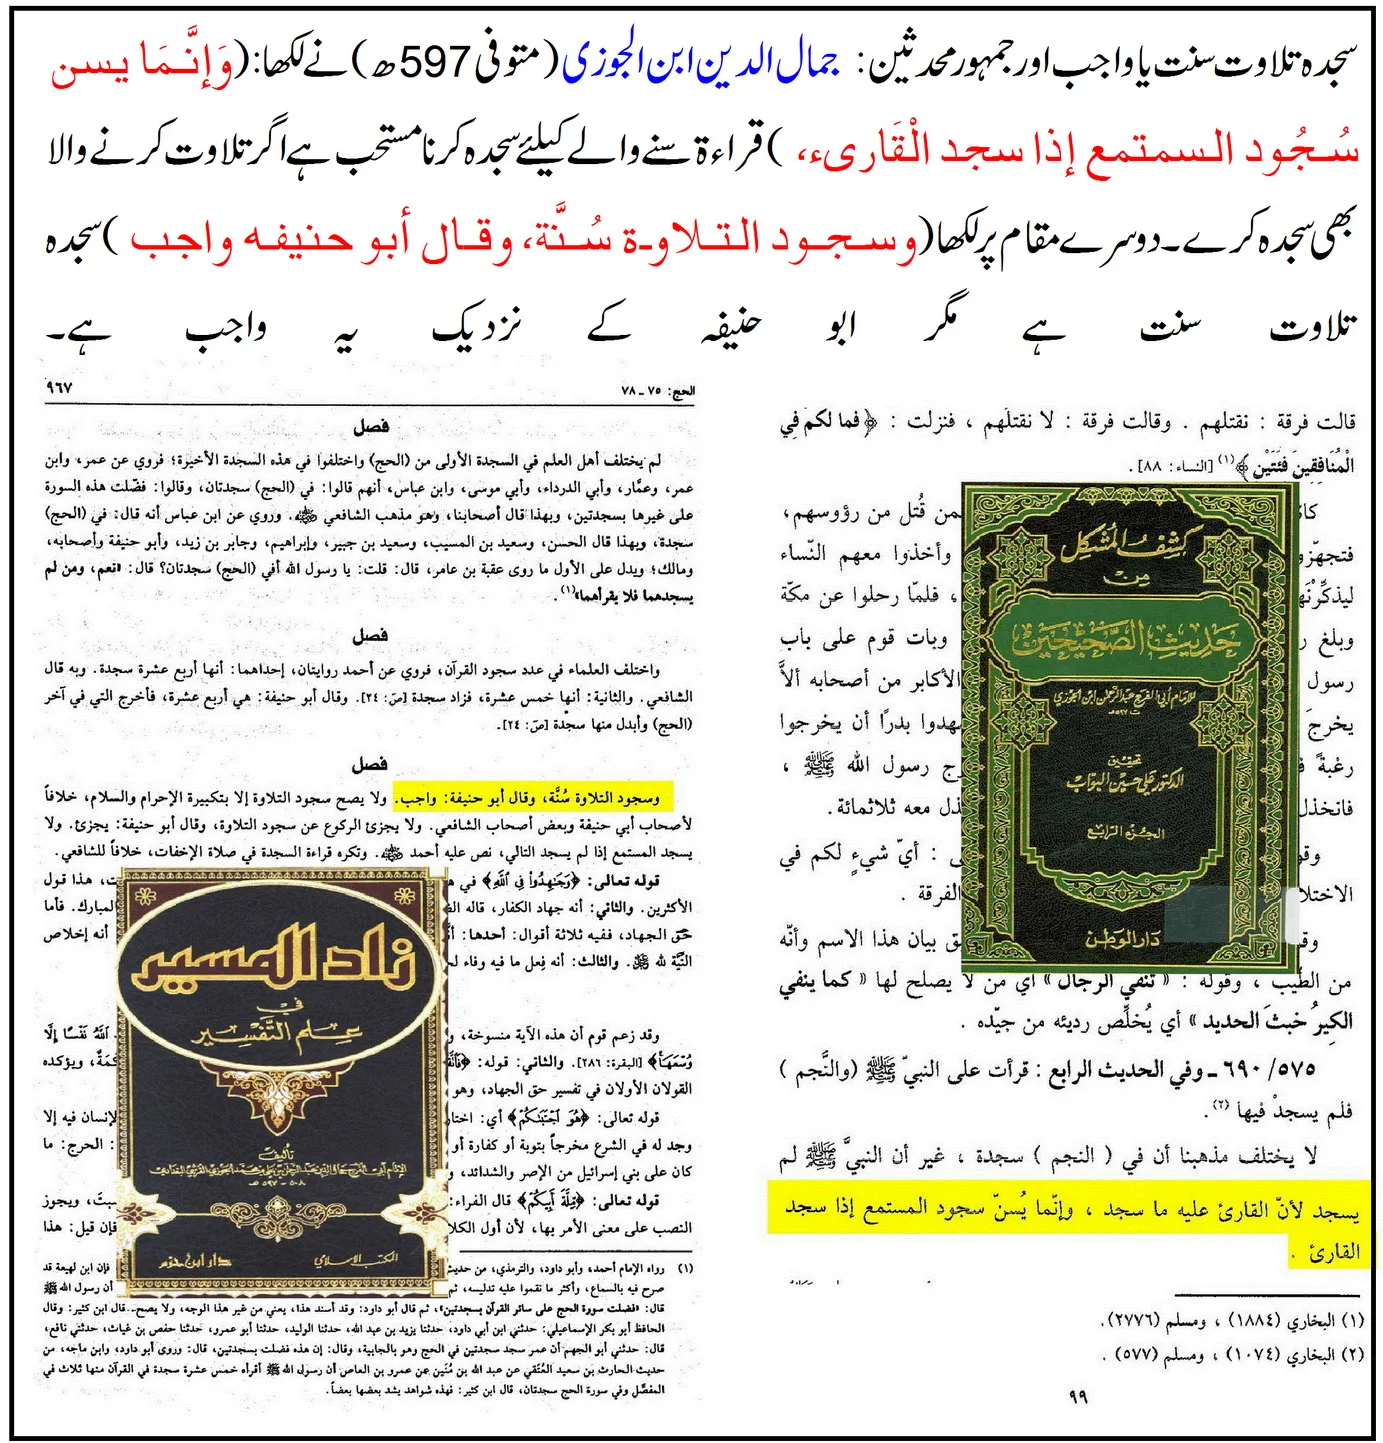 سجدہ تلاوت سنت یا واجب اور جمہور محدثین: جمال الدین ابن الجوزی (متوفی 597ھ) نے لکھا: (وَإِنَّمَا يسن
سُجُود السمتمع إذا سجد الْقَارىء، ) قراءۃ سننے والے کیلئے سجدہ کرنا مستحب ہے اگر تلاوت کرنے والا
بھی سجدہ کرے۔ دوسرے مقام پر لکھا (وسجود التلاوة سُنَّة، وقال أبو حنيفه واجب ) سجدہ
تلاوت سنت ہے مگر ابو حنیفہ کے نزدیک یہ واجب ہے۔
قالت فرقة : نقتلهم . وقالت فرقة : لا نقتلهم ، فنزلت : ﴿فما لكم فِي
الْمُنَافِقِينَ فئَتَيْنِ﴾(١) [النساء: ٨٨] .
من قُتل من رؤوسهم،
وأخذوا معهم النّساء
، فلمّا رحلوا عن مكّة
وبلغ
وبات قوم على باب
رسول
الأكابر من أصحابه ألاَّ
يخرجَ
هدوا بدرًا أن يخرجوا
رغبةً
رسول الله ﷺ ،
فانخذل
ذل معه ثلاثمائة.
: أيّ شيءٍ لكم في
الاختلا
الفرقة .
بيان هذا الاسم وأنّه
من الطيب ، وقوله : « تنفي الرجال » أي من لا يصلح لها « كما ينفي
الكيرُ خبثَ الحديد » أي يُخلِّص رديئه من جيّده .
٥٧٥/ ٦٩٠ ـ وفي الحديث الرابع : قرأت على النبيّ ﷺ (والنَّجم )
فلم يسجدْ فيها (٢).
لا يختلف مذهبنا أن في ( النجم ) سجدة ، غير أن النبيَّ ﷺ لم
يسجد لأنّ القارئ عليه ما سجد ، وإنّما يُسنّ سجود المستمع إذا سجد
القارئ .
(١) البخاري (١٨٨٤) ، ومسلم (٢٧٧٦).
(٢) البخاري (١٠٧٤) ، ومسلم (٥٧٧) .
٩٩
كشف المشكل
من
حديث الصحيحين
للإمام أبي الفرج عبد الرحمن ابن الجوزي
ت ٥٩٧هـ
تحقيق
الدكتور علي حسين البواب
الجزء الرابع
دار الوطن
الحج: ٧٥ ـ ٧٨
٩٦٧
فصل
لم يختلف أهل العلم في السجدة الأولى من (الحج) واختلفوا في هذه السجدة الأخيرة؛ فروي عن عمر، وابن
عمر، وعمَّار، وأبي الدرداء، وأبي موسى، وابن عباس، أنهم قالوا: في (الحج) سجدتان، وقالوا: فضّلت هذه السورة
على غيرها بسجدتين، وبهذا قال أصحابنا، وهو مذهب الشافعي ﷺ. وروي عن ابن عباس أنه قال: في (الحج)
سجدة، وبهذا قال الحسن، وسعيد بن المسيب، وسعيد بن جبير، وإبراهيم، وجابر بن زيد، وأبو حنيفة وأصحابه،
ومالك؛ ويدل على الأول ما روى عقبة بن عامر، قال: قلت: يا رسول الله أفي (الحج) سجدتان؟ قال: «نعم، ومن لم
يسجدهما فلا يقرأهما»(١).
فصل
واختلف العلماء في عدد سجود القرآن، فروي عن أحمد روايتان، إحداهما: أنها أربع عشرة سجدة. وبه قال
الشافعي. والثانية: أنها خمس عشرة، فزاد سجدة [صَ: ٢٤]. وقال أبو حنيفة: هي أربع عشرة، فأخرج التي في آخر
(الحج) وأبدل منها سجدة [صَ: ٢٤].
فصل
وسجود التلاوة سُنَّة، وقال أبو حنيفة: واجب. ولا يصح سجود التلاوة إلا بتكبيرة الإحرام والسلام، خلافاً
لأصحاب أبي حنيفة وبعض أصحاب الشافعي. ولا يجزئ الركوع عن سجود التلاوة، وقال أبو حنيفة: يجزئ. ولا
يسجد المستمع إذا لم يسجد التالي، نص عليه أحمد. وتكره قراءة السجدة في صلاة الإخفات، خلافاً للشافعي.
قوله تعالى: ﴿وَجَٰهِدُواْ فِي ٱللَّهِ﴾ في
هذا قول
الأكثرين. والثاني: أنه جهاد الكفار، قاله
المبارك. فأما
حَق الجهاد، ففيه ثلاثة أقوال: أحدها:
أنه إخلاص
النيَّة لله. والثالث: أنه فِعل ما فيه وفاء
وقد زعم قوم أن هذه الآية منسوخة،
ٱللَّهُ نَفۡسًا إِلَّا
وُسۡعَهَاۚ﴾ [البقرة: ٢٨٦]. والثاني: قوله:
ويؤكده
القولان الأولان في تفسير حق الجهاد، وهو
قوله تعالى: ﴿هُوَ ٱجۡتَبَىٰكُمۡ﴾ أي: اختار
الإنسان فيه إلا
وجد له في الشرع مخرجاً بتوبة أو كفارة أو
الحرج: ما
كان على بني إسرائيل من الإصر والشدائد،
قوله تعالى: ﴿مِّلَّةَ أَبِيكُمۡ﴾ قال الفراء:
ويجوز
النصب على معنى الأمر بها، لأن أول الكلا
فإن قيل: هذا
(١) رواه الإمام أحمد، وأبو داود، والترمذي، من حديث
فإن ابن لهيعة قد
صرح فيه بالسماع، وأكثر ما نقموا عليه تدليسه،
أن رسول الله ﷺ
قال: «فضلت سورة الحج على سائر القرآن بسجدتين»، ثم قال أبو داود: وقد أسند هذا، يعني من غير هذا الوجه، ولا يصح. قال ابن كثير: وقال
الحافظ أبو بكر الإسماعيلي: حدثني ابن أبي داود، حدثنا يزيد بن عبد الله، حدثنا الوليد، حدثنا أبو عمرو، حدثنا حفص بن غياث، حدثني نافع،
قال: حدثني أبو الجهم أن عمر سجد سجدتين في الحج وهو بالجابية، وقال: إن هذه فضلت بسجدتين، قال: وروى أبو داود، وابن ماجه، من
حديث الحارث بن سعيد العُتَقي عن عبد الله بن مُنَين عن عمرو بن العاص أن رسول الله ﷺ أقرأه خمس عشرة سجدة في القرآن منها ثلاث في
المفصَّل وفي سورة الحج سجدتان، قال ابن كثير: فهذه شواهد يشد بعضها بعضاً.
زاد المسير
في
علم التفسير
تأليف
٥٠٨ - ٥٩٧ هـ
المكتب الاسلامي
دار ابن حزم